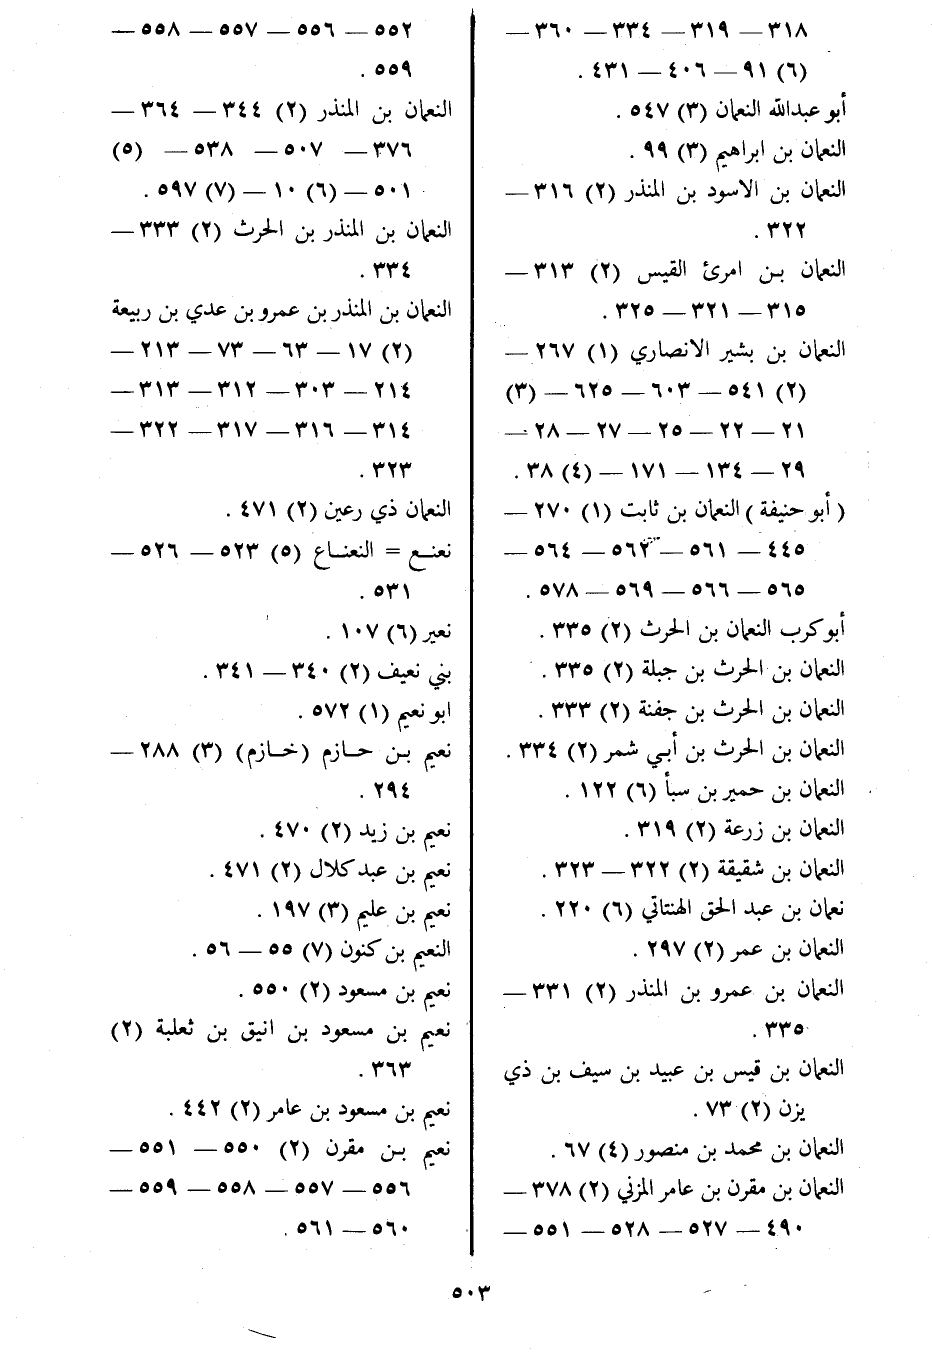 ٣١٨ — ٣١٩ — ٣٣٤ — ٣٦٠ —
(٦) ٩١ — ٤٠٦ — ٤٣١ .
أبو عبدالله النعمان (٣) ٥٤٧ .
النعمان بن ابراهيم (٣) ٩٩ .
النعمان بن الاسود بن المنذر (٢) ٣١٦ —
٣٢٢ .
النعمان بن امرئ القيس (٢) ٣١٣ —
٣١٥ — ٣٢١ — ٣٢٥ .
النعمان بن بشير الانصاري (١) ٢٦٧ —
(٢) ٥٤١ — ٦٠٣ — ٦٢٥ — (٣)
٢١ — ٢٢ — ٢٥ — ٢٧ — ٢٨ —
٢٩ — ١٣٤ — ١٧١ — (٤) ٣٨ .
( أبو حنيفة ) النعمان بن ثابت (١) ٢٧٠ —
٤٤٥ — ٥٦١ — ٥٦٢ — ٥٦٤ —
٥٦٥ — ٥٦٦ — ٥٦٩ — ٥٧٨ .
أبو كرب النعمان بن الحرث (٢) ٣٣٥ .
النعمان بن الحرث بن جبلة (٢) ٣٣٥ .
النعمان بن الحرث بن جفنة (٢) ٣٣٣ .
النعمان بن الحرث بن أبي شمر (٢) ٣٣٤ .
النعمان بن حمير بن سبأ (٦) ١٢٢ .
النعمان بن زرعة (٢) ٣١٩ .
النعمان بن شقيقة (٢) ٣٢٢ — ٣٢٣ .
نعمان بن عبد الحق الهنتاتي (٦) ٢٢٠ .
النعمان بن عمر (٢) ٢٩٧ .
النعمان بن عمرو بن المنذر (٢) ٣٣١ —
٣٣٥ .
النعمان بن قيس بن عبيد بن سيف بن ذي
يزن (٢) ٧٣ .
النعمان بن محمد بن منصور (٤) ٦٧ .
النعمان بن مقرن بن عامر المزني (٢) ٣٧٨ —
٤٩٠ — ٥٢٧ — ٥٢٨ — ٥٥١ —
٥٥٢ — ٥٥٦ — ٥٥٧ — ٥٥٨ —
٥٥٩ .
النعمان بن المنذر (٢) ٣٤٤ — ٣٦٤ —
٣٧٦ — ٥٠٧ — ٥٣٨ — (٥)
٥٠١ — (٦) ١٠ — (٧) ٥٩٧ .
النعمان بن المنذر بن الحرث (٢) ٣٣٣ —
٣٣٤ .
النعمان بن المنذر بن عمرو بن عدي بن ربيعة
(٢) ١٧ — ٦٣ — ٧٣ — ٢١٣ —
٢١٤ — ٣٠٣ — ٣١٢ — ٣١٣ —
٣١٤ — ٣١٦ — ٣١٧ — ٣٢٢ —
٣٢٣ .
النعمان ذي رعين (٢) ٤٧١ .
نعنع = النعناع (٥) ٥٢٣ — ٥٢٦ —
٥٣١ .
نعير (٦) ١٠٧ .
بني نعيف (٢) ٣٤٠ — ٣٤١ .
ابو نعيم (١) ٥٧٢ .
نعيم بن حازم (خازم) (٣) ٢٨٨ —
٢٩٤ .
نعيم بن زيد (٢) ٤٧٠ .
نعيم بن عبد كلال (٢) ٤٧١ .
نعيم بن عليم (٣) ١٩٧ .
النعيم بن كنون (٧) ٥٥ — ٥٦ .
نعيم بن مسعود (٢) ٥٥٠ .
نعيم بن مسعود بن انيق بن ثعلبة (٢)
٣٦٣ .
نعيم بن مسعود بن عامر (٢) ٤٤٢ .
نعيم بن مقرن (٢) ٥٥٠ — ٥٥١ —
٥٥٦ — ٥٥٧ — ٥٥٨ — ٥٥٩ —
٥٦٠ — ٥٦١ .
٥٠٣